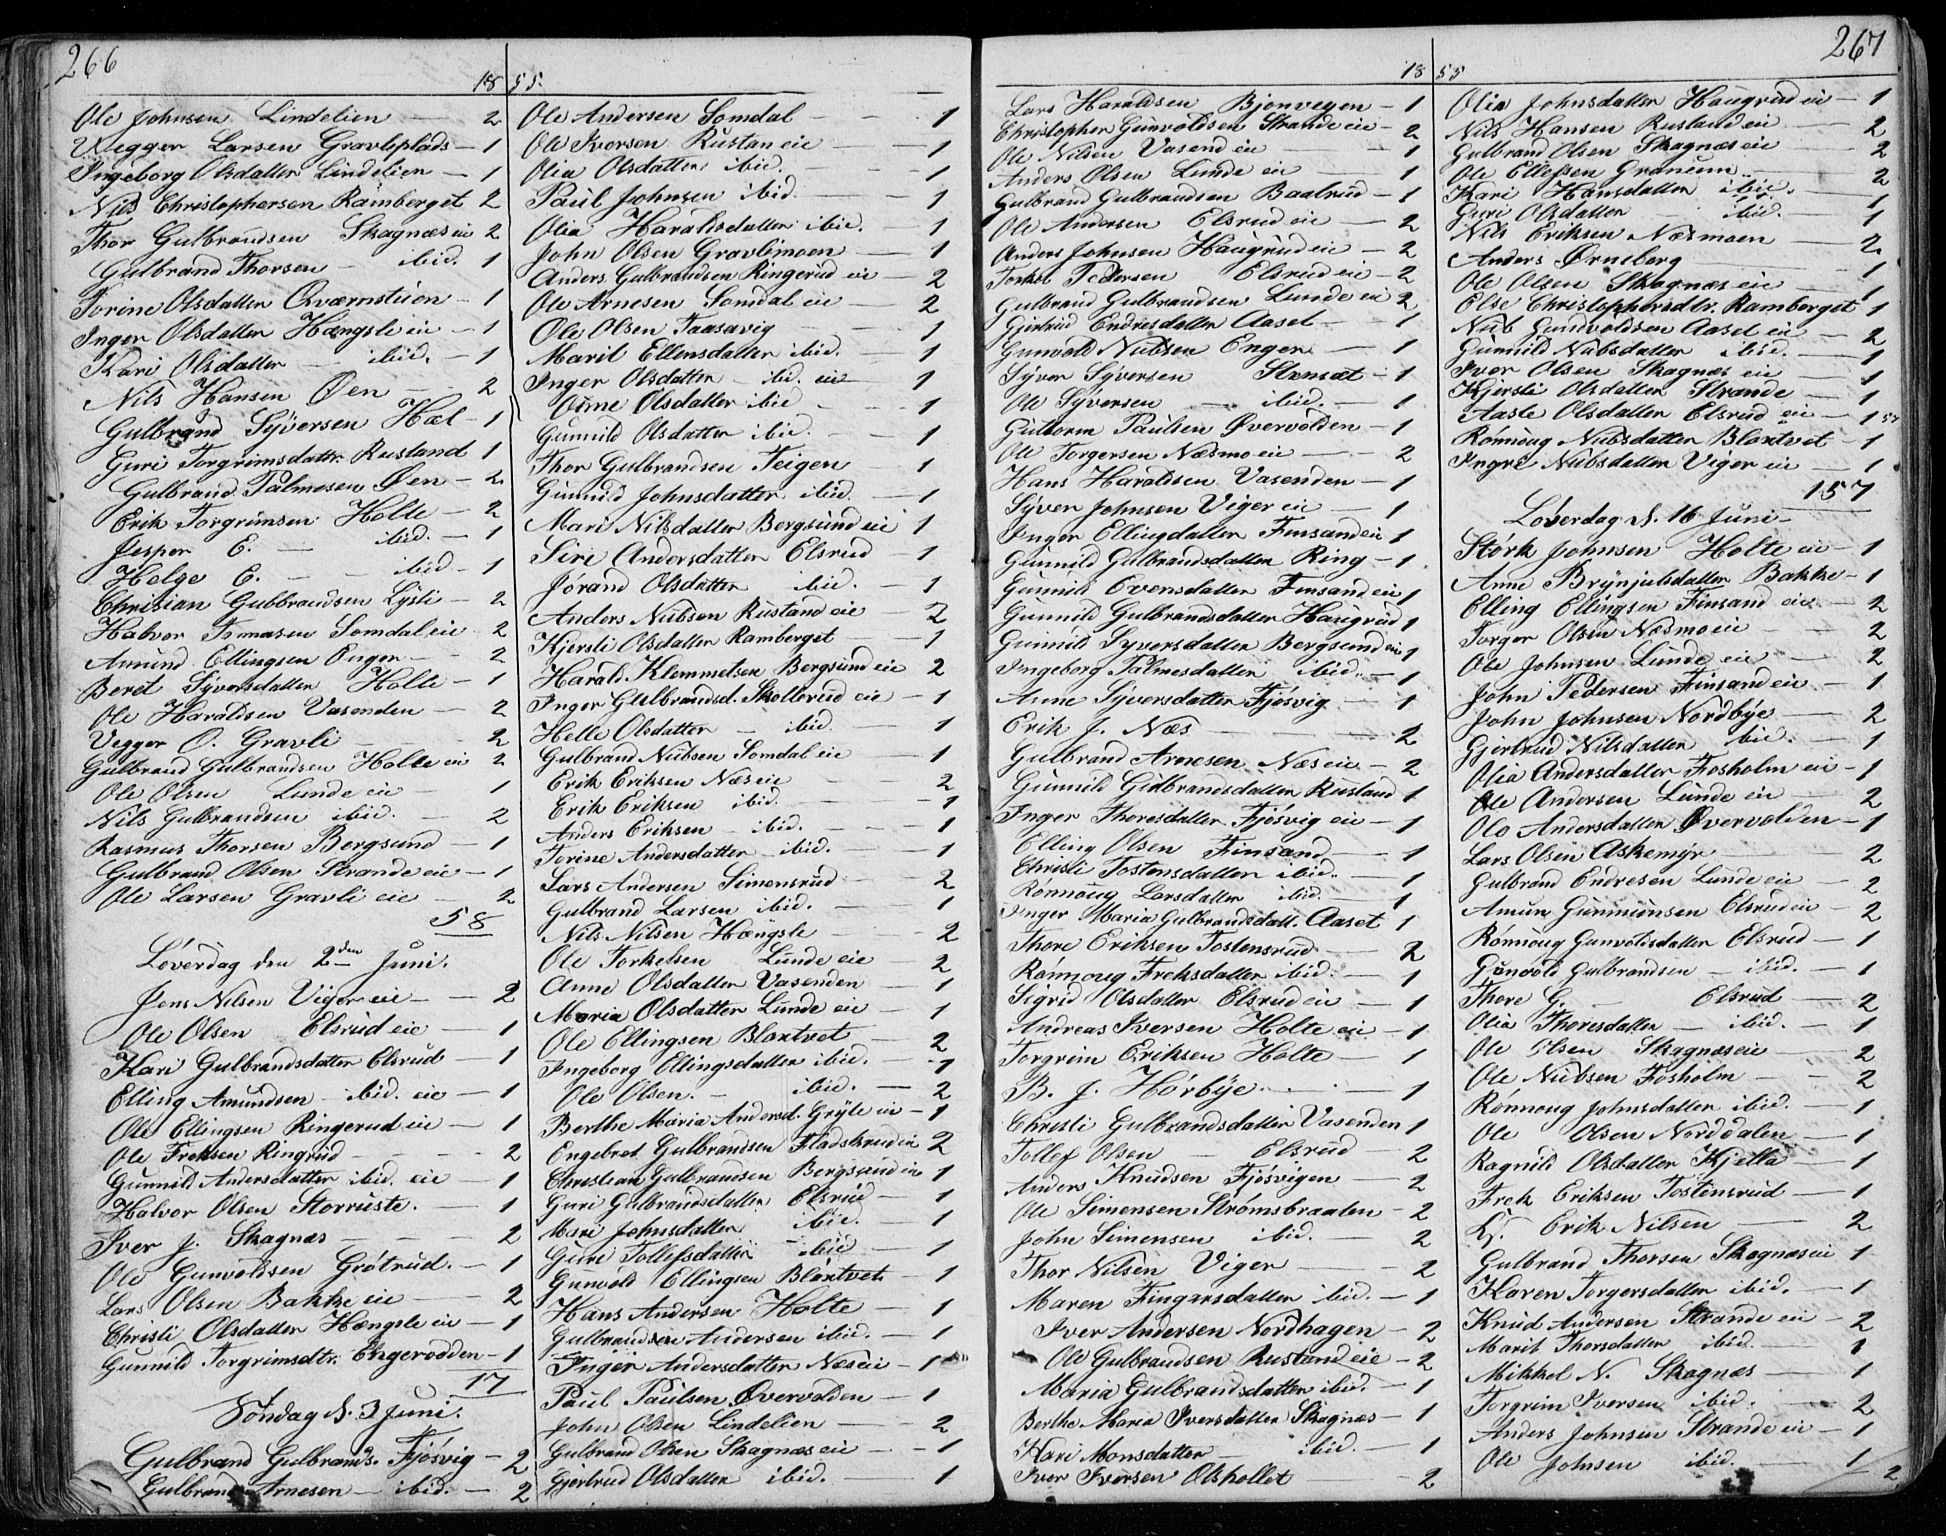 266
1855.
Ole Johnsen Lindelien — 2
Vegger Larsen Gravliplads — 1
Ingeborg Olsdatter Lindelien — 1
Nils Christophersen Ramberget 2
Thor Gulbrandsen Skagnæs eie 2
Gulbrand Thorsen — ibid. 1
Torine Olsdatter Qværnstuen — 1
Inger Olsdatter Hængsle eie — 1
Kari Olsdatter — ibid. — 1
Nils Hansen Øen — 2
Gulbrand Syversen Hæl — 1
Guri Torgrimsdattr. Rustand 1
Gulbrand Palmesen Øen — 2
Erik Torgrimsen Holte — 2
Jesper E. — ibid. — 1
Helge E. — ibid — 1
Christian Gulbrandsen Lysli — 2
Halvor Tomasen Somdal eie 2
Amund Ellingsen Enger — 2
Beret Syversdatter Holte — 1
Ole Haraldsen Vasenden — 2
Vegger O. Gravli — 2
Gulbrand Gulbrandsen Holte eie 2
Ole Olsen Lunde eie — 1
Nils Gulbrandsen ibid. — 2
Rasmus Thorsen Bergsund — 1
Gulbrand Olsen Strande eie — 1
Ole Larsen Gravli eie — 2
58
Løverdag den 2den Juni.
Jens Nilsen Viger eie — 2
Ole Olsen Elsrud eie — 1
Kari Gulbrandsdatter Elsrud — 1
Elling Amundsen ibid. eie — 1
Ole Ellingsen Ringerud eie — 1
Ole Freksen Ringrud — 2
Gunnild Andersdatter ibid. eie — 1
Halvor Olsen Storruste. — 1
Iver J. Skagnæs — 2
Ole Gunvoldsen Grøtrud. — 1
Lars Olsen Bakke eie — 2
Christi Olsdatter Hængsle eie — 1
Gunnild Torgrimsdtr. Engerodden — 1
17
Søndag d. 3 Juni.
Gulbrand Gulbrands. Fjøsvig — 2
Gulbrand Arnesen — ibid. — 2
Ole Andersen Somdal — 1
Ole Iversen Rustan eie — 1
Olia Olsdatter ibid. — 1
Paul Johnsen ibid. — 1
Olia Haraldsdatter ibid. — 1
John Olsen Gravlimoen — 1
Anders Gulbrandsen Ringerud eie 2
Ole Arnesen Somdal eie — 2
Ole Olsen Taasavig 1
Marit Ellensdatter ibid. — 1
Inger Olsdatter — ibid. eie 1
Olsdatter ibid — 1
Gunnild Olsdatter ibid. — 1
Thor Gulbrandsen Teigen 1
Gunnild Johnsdatter ibid. — 1
Mari Nilsdatter Bergsund eie 1
Siri Andersdatter Elsrud — 1
Jørand Olsdatter ibid. — 1
Anders Nubsen Rustand eie 2
Kjersti Olsdatter Ramberget — 1
Harald Klemmetsen Bergsund eie 2
Inger Gulbrandsd. Skollerud eie — 1
Helle Olsdatter — ibid. 1
Gulbrand Nubsen Somdal eie — 1
Erik Eriksen Næs eie — 2
Erik Eriksen ibid. — 1
Anders Eriksen — ibid. — 1
Torine Andersdatter ibid. — 1
Lars Andersen Simensrud — 2
Gulbrand Larsen ibid. — 1
Nils Nilsen Hængsle — 2
Ole Torkelsen Lunde eie — 2
Anne Olsdatter Vasenden — 1
Maria Olsdatter Lunde eie — 1
Ole Ellingsen Blaxtvet — 2
Ingeborg Ellingsdatter ibid. — 1
Ole Olsen. — ibid. — 2
Berthe Maria Andersd. Gryte eie — 1
Engebret Gulbrandsen Fladskrud eie 2
Christian Gulbrandsen Bergsund eie 1
Guri Gulbrandsdatter Elsrud — 1
Mari Johnsdatter ibid. — 1
Guri Tollefsdatter — ibid — 1
Gunvold Ellingsen Blaxtvet — 1
Hans Andersen Holte — 1
Gulbrandsen Andersen ibid. — 1
Inger Andersdatter Næs eie — 1
Paul Paulsen Øvervolden — 1
John Olsen Lindelien — 2
Gulbrand Olsen Skagnæs eie — 1
Gjertrud Olsdatter ibid. 1
267
1855
Lars Haraldsen Bjonvegen — 1
Christopher Gunvoldsen Strande eie — 2
Ole Nilsen Vasend eie 1
Anders Olsen Lunde eie — 1
Gulbrand Gulbrandsen Baalrud — 1
Ole Andersen Elsrud eie — 2
Anders Johnsen Haugrud eie — 2
Torkel Pedersen Elsrud eie — 2
Gulbrand Gulbrandsen Lunde eie 2
Gjertrud Endresdatter Aaset — 1
Gunvold Nubsen Enger — 1
Syver Syversen Stensæt — 1
Ole Syversen — ibid. — 1
Guttorm Paulsen Øvervolden — 1
Ole Torgersen Næsmo eie — 2
Hans Haraldsen Vasenden — 1
Syver Johnsen Viger eie — 1
Inger Ellingdatter Finsand eie 1
Gunnild Gulbrandsdatter Ring — 1
Gunnild Evensdatter Finsand eie 1
Gunnild Gulbrandsdatter Haugrud 1
Gunnild Syversdatter Bergsund eie 1
Ingeborg Palmesdatter ibid. — 1
Anne Syversdatter Fjøsvig — 1
Erik J. Næs — 2
Gulbrand Arnesen Næs eie — 2
Gunnild Gulbrandsdatter Rustand 1
Inger Thoresdatter Fjøsvig eie — 1
Elling Olsen Finsand — 1
Christi Tostensdatter ibid. — 1
Rønnoug Larsdatter ibid. — 1
Inger Maria Gulbrandsdatt. Aaset 1
Thore Eriksen Tostensrud — 2
Rønnoug Freksdatter ibid. — 1
Sigrid Olsdatter Elsrud eie — 1
Andreas Iversen Holte eie — 1
Torgrim Eriksen Holte — 1
B. J. Hørbye. — 1
Christi Gulbrandsdatter Vasenden 1
Tollef Olsen — Elsrud — 2
Anders Knudsen Fjøsvigen — 2
Ole Simensen Strømsbraaten — 2
John Simensen ibid. 2
Thor Nilsen Viger — 2
Maren Fingarsdatter ibid. — 1
Iver Andersen Nordhagen — 2
Ole Gulbrandsen Rustand eie — 2
Maria Gulbrandsdatter ibid. — 1
Berthe Maria Iversdatter Skagnæs — 1
Kari Monsdatter — ibid. — 1
Iver Iversen Olshollet — 2
Olia Johnsdatter Haugrud eie — 1
Nils Hansen Rustand eie — 2
Gulbrand Olsen Skagnæs eie 2
Ole Ellefsen Granum — 2
Kari Hansdatter ibid. — 1
Guri Olsdatter — ibid. 1
Nils Eriksen Næsmoen — 2
Anders Ørneberg — 1
Ole Olsen Skagnæs eie — 1
Else Christophersdtr. Ramberget 1
Nub Gundvoldsen Aaset eie — 2
Gunnild Nubsdatter ibid. — 1
Iver Olsen Skagnæs eie — 1
Kjersti Olsdatter Strande — 1
Aaste Olsdatter Elsrud eie — 1
Rønnoug Nubsdatter Blaxtvet — 1
Ingri Nubsdatter Viger eie — 1
157
Løverdag d. 16 Juni
Størk Johnsen Holte eie — 1
Anne Brynjulsdatter Bakke — 1
Elling Ellingsen Finsand eie — 2
Torger Olsen Næsmo eie — 2
Ole Johnsen Lunde eie — 2
John Pedersen Finsand eie — 1
John Johnsen Nordbye — 2
Gjertrud Nilsdatter ibid. — 1
Olia Andersdatter Fosholm eie — 1
Ole Andersen Lunde eie — 2
Olo Andersdatter Øvervolden — 1
Lars Olsen Askemyr — 2
Gulbrand Endresen Lunde eie — 2
Amun Gunnunsen Elsrud eie — 2
Rønnoug Gunvoldsdatter Elsrud — 1
Gunvold Gulbrandsen — ibid. — 1
Thore G. — Elsrud — 2
Olia Thoresdatter — ibid. — 1
Ole Olsen Skagnæs eie — 2
Ole Nubsen Fosholm — 2
Rønnoug Johnsdatter ibid. — 1
Ole Olsen Norddalen — 1
Ragnild Olsdatter Kjella — 1
Frek Eriksen Tostensrud — 1
Erik Nilsen — 2
Gulbrand Thorsen Skagnæs eie 1
Karen Torgersdatter ibid. — 1
Knud Andersen Strande eie — 2
Marit Thorsdatter ibid. — 1
Mikkel N. Skagnæs — 1
Torgrim Iversen ibid. — 2
Anders Johnsen Strande eie — 1
Ole Johnsen ibid. — 1